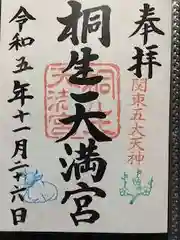 奉拝
関東五大天神
桐生天満宮
令和五年十一月二十六日